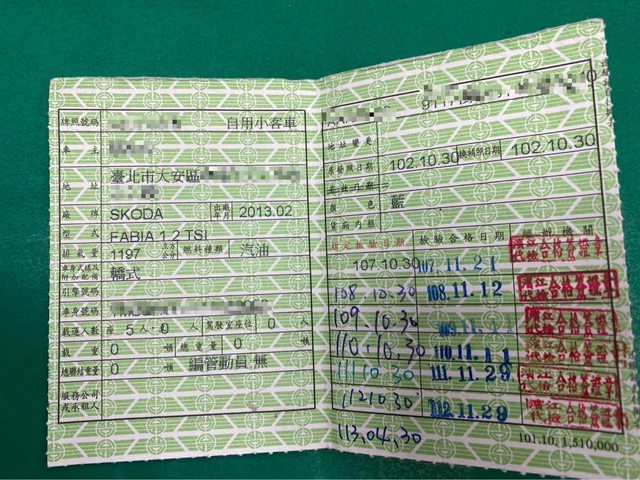 牌照號碼 自用小客車
車主
地址 臺北市大安區
廠牌 SKODA 出廠年月 2013.02
型式 FABIA 1.2 TSI
排氣量 1197 立方公分 燃料種類 汽油
車身式樣及附加配備 轎式
引擎號碼
車身號碼
載運人數 座 5人.0 人 駕駛室座位 0 人
載重 0 噸 總重量 0 噸
總聯結重量 0 噸 編管動員:無
服務公司或承租人
地址變更
原發照日期 102.10.30 換補照日期 102.10.30
顏色 藍
貨廂內框
指定檢驗日期 檢驗合格日期
107.10.30 107.11.21 濱江代檢合格簽證章
108.10.30 108.11.12 濱江代檢合格簽證章
109.10.30 109.11.11 濱江代檢合格簽證章
110.10.30 110.11.11 濱江代檢合格簽證章
111.10.30 111.11.29 濱江代檢合格簽證章
112.10.30 112.11.29 濱江代檢合格簽證章
113.04.30
101.10.1,510,000